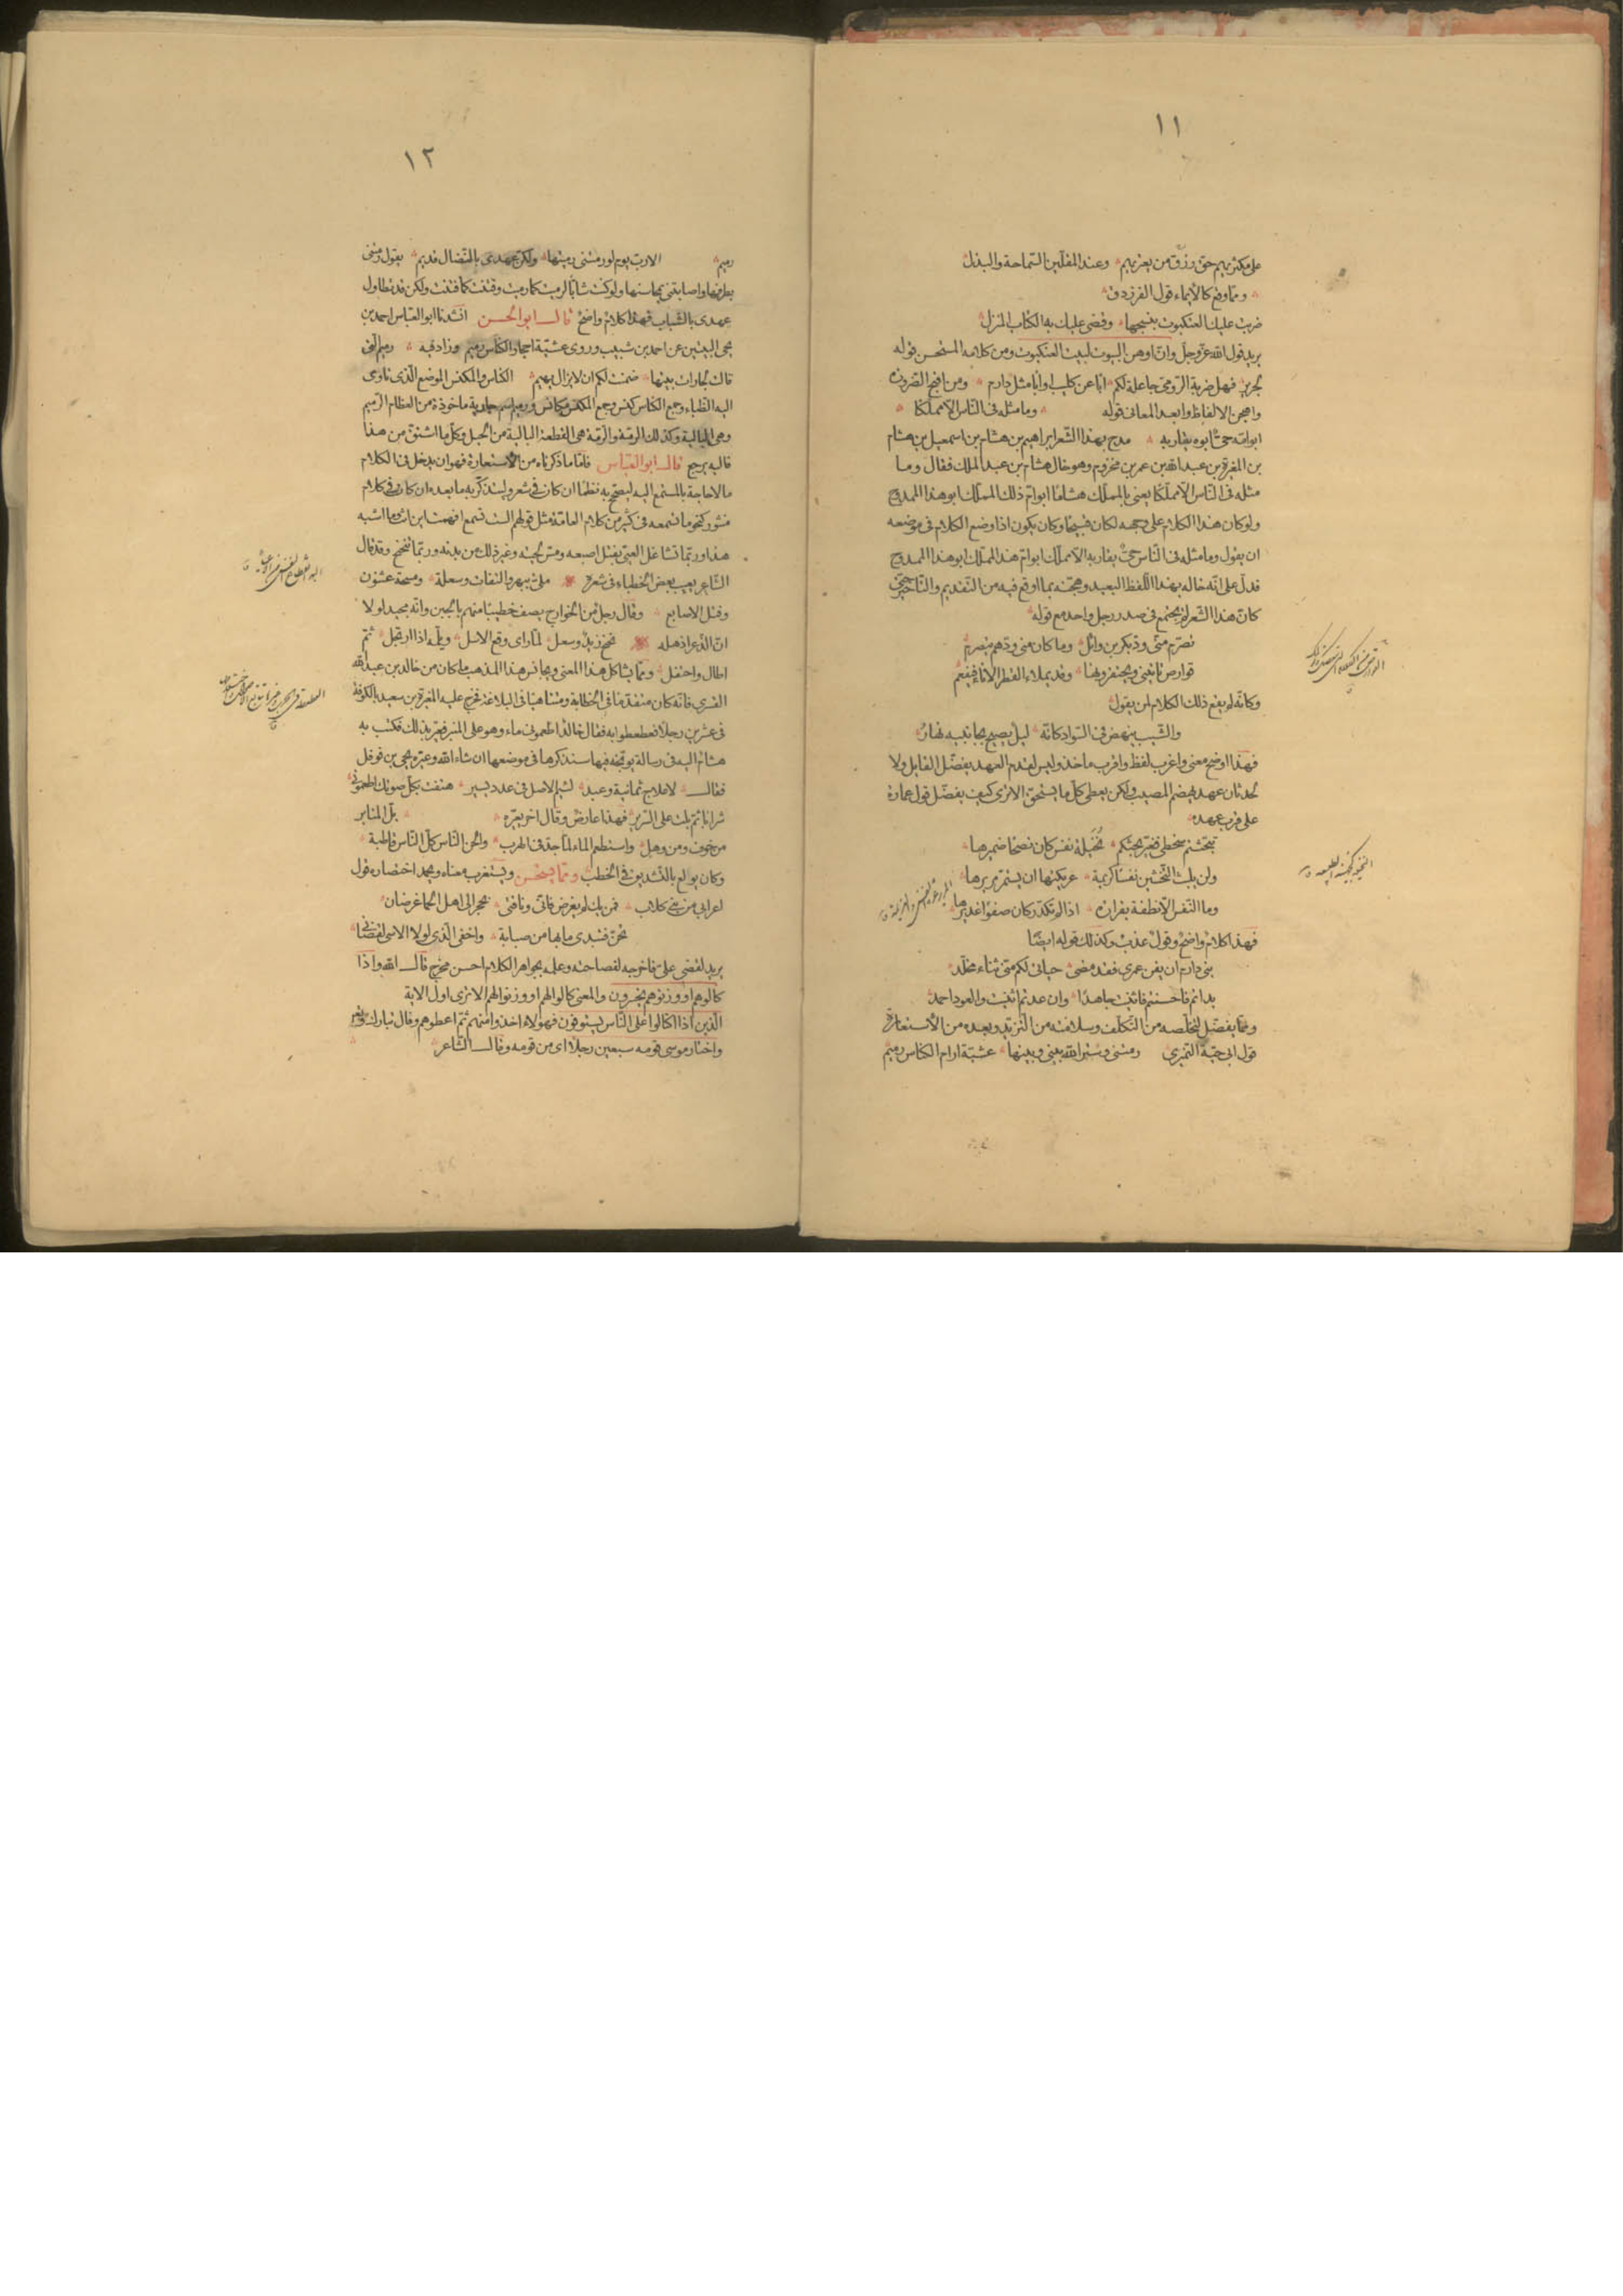 ١١
على مكثريهم حق رزق من يعتريهم وعند المقلين السماحة والبذل
ومما وقع كالايماء قول الفرزدق
ضربت عليك العنكبوت بنسجها وقضى عليك به الكتاب المنزل
يريد قول الله عز وجل وان اوهن البيوت لبيت العنكبوت ومن كلامه المستحسن قوله
لجرير فهل ضربة الرومي جاعلة لكم ابًا عن كليب او ابا مثل دارم ومن اقبح الضرورة
واهجن الالفاظ وابعد المعانى قوله وما مثله فى الناس الا مملكا
ابو امه حىّ ابوه يقاربه مدح بهذا الشعر ابراهيم بن هشام بن اسمعيل بن هشام
بن المغيرة بن عبد الله بن عمر بن مخزوم وهو خال هشام بن عبد الملك فقال وما
مثله فى الناس الا مملكا يعنى بالمملك هشاما ابو ام ذلك المملك ابو هذا الممدوح
ولو كان هذا الكلام على وجهه لكان قبيحا وكان يكون اذا وضع الكلام فى موضعه
ان يقول وما مثله فى الناس حىّ يقاربه الا مملك ابو ام هذا المملك ابو هذا الممدوح
فدل على انه خاله بهذا اللفظ البعيد وهجنه بما اوقع فيه من التقديم والتاخير حتى
كان هذا الشعر لم يجتمع فى صدر رجل واحد مع قوله
تصرم منى ود بكر بن وائل وما كان منى ودهم يتصرم
قوارص تاتينى ويحتقرونها وقد يملاء القطر الاناء فيفعم
وكانه لم يقع ذلك الكلام لمن يقول
والشيب ينهض فى السواد كانه ليل يصيح بجانبيه نهار
فهذا اوضح معنى واعرب لفظ واقرب ماخذ وليس لقدم العهد يفضل القايل ولا
لحدثان عهد يهضم المصيب ولكن يعطى كل ما يستحق الا ترى كيف يفضل قول عمارة
على قرب عهده
تبحثتم سخطى فغير بحثكم نخيلة نفس كان نصحا ضميرها
ولن يلبث التخشين نفسا كريمة عريكتها ان يستمر مريرها
وما النفس الا نطفة بقرارة اذا لم تكدر كان صفوا غديرها
فهذا كلام واضح وقول عذب وكذلك قوله ايضا
بنى دارم ان يفن عمرى فقد مضى حياتى لكم منى ثناء مخلد
بداتم فاحسنتم فاثنيت جاهدا وان عدتم اثنيت والعود احمد
ومما يفضل لتخلصه من التكلف وسلامته من التزيد وبعده من الاستعارة
قول ابى حية النميرى رمتنى وستر الله بينى وبينها عشية ارام الكناس رميم
١٢
رميم الا رب يوم لو رمتنى رميتها ولكن عهدى بالنضال قديم يقول رمتنى
بطرفها واصابتنى بمحاسنها ولو كنت شابا لرميت كما رميت وفتنت كما فتنت ولكن قد تطاول
عهدى بالشباب فهذا كلام واضح قال ابو الحسن انشدنا ابو العباس احمد بن
يحيى البيتين عن احمد بن شبيب وروى عشية احجار الكناس رميم وزاد فيه رميم التى
قالت لجارات بيتها ضمنت لكم ان لا يزال يهيم الكناس والمكنس الموضع الذى تاوى
اليه الظباء وجمع الكناس كنس وجمع المكنس مكانس ورميم اسم جارية ماخوذة من العظام الرميم
وهى البالية وكذلك الرمة والرمة هى القطعة البالية من الحبل وكل ما اشتق من هذا
فاليه يرجع قال ابو العباس فاما ما ذكرناه من الاستعارة فهو ان يدخل فى الكلام
ما لا حاجة بالمستمع اليه ليصحح به نظما ان كان فى شعر وليتذكر به ما بعده ان كان فى كلام
منثور كنحو ما تسمعه فى كثير من كلام العامة مثل قولهم الست تسمع افهمت اين انت وما اشبه
هذا وربما تشاغل العيى بفتل اصبعه ومس لحيته وغير ذلك من بدنه وربما تنحنح وقد قال
الشاعر يعيب بعض الخطباء فى شعره ملىّ ببهر والتفات وسعلة ومسحة عثنون
وفتل الاصابع وقال رجل من الخوارج يصف خطيبا منهم بالجبن وانه مجيد لولا
ان الذعر اذهله نحنح زيد وسعل لما راى وقع الاسل ويلمه اذا ارتجل ثم
اطال واحتفل ومما يشاكل هذا المعنى ويجانس هذا المذهب ما كان من خالد بن عبد الله
القسرى فانه كان متقدما فى الخطابة ومتناهيا فى البلاغة فخرج عليه المغيرة بن سعيد بالكوفة
فى عشرين رجلا فعطعطوا به فقال خالد اطعمونى ماء وهو على المنبر فعير بذلك فكتب به
هشام اليه فى رسالة يوبخه فيها سنذكرها فى موضعها ان شاء الله وعيره يحيى بن نوفل
فقال لاعلاج ثمانية وعبد لئيم الاصل فى عدد يسير هتفت بكل صوتك اطعمونى
شرابا ثم بلت على السرير فهذا عارض وقال اخر يعيره بل المنابر
من خوف ومن وهل واستطعم الماء لما جد فى الهرب والحن الناس كل الناس قاطبة
وكان يولع بالتشديق فى الخطب ومما يستحسن ويستغرب معناه ويحمد اختصاره قول
اعرابى من بنى كلاب فمن يك لم يغرض فانى وناقتى بحجر الى اهل الحما غرضان
تحن فتبدى ما بها من صبابة واخفى الذى لولا الاسى لقضانى
يريد لقضى على فاخرجه لفصاحته وعلمه بجواهر الكلام احسن مخرج قال الله واذا
كالوهم او وزنوهم يخسرون والمعنى كالوا لهم او وزنوا لهم الا ترى اول الاية
الذين اذا اكتالوا على الناس يستوفون فهولاء اخذوا منهم ثم اعطوهم وقال تبارك وتعالى
واختار موسى قومه سبعين رجلا اى من قومه وقال الشاعر